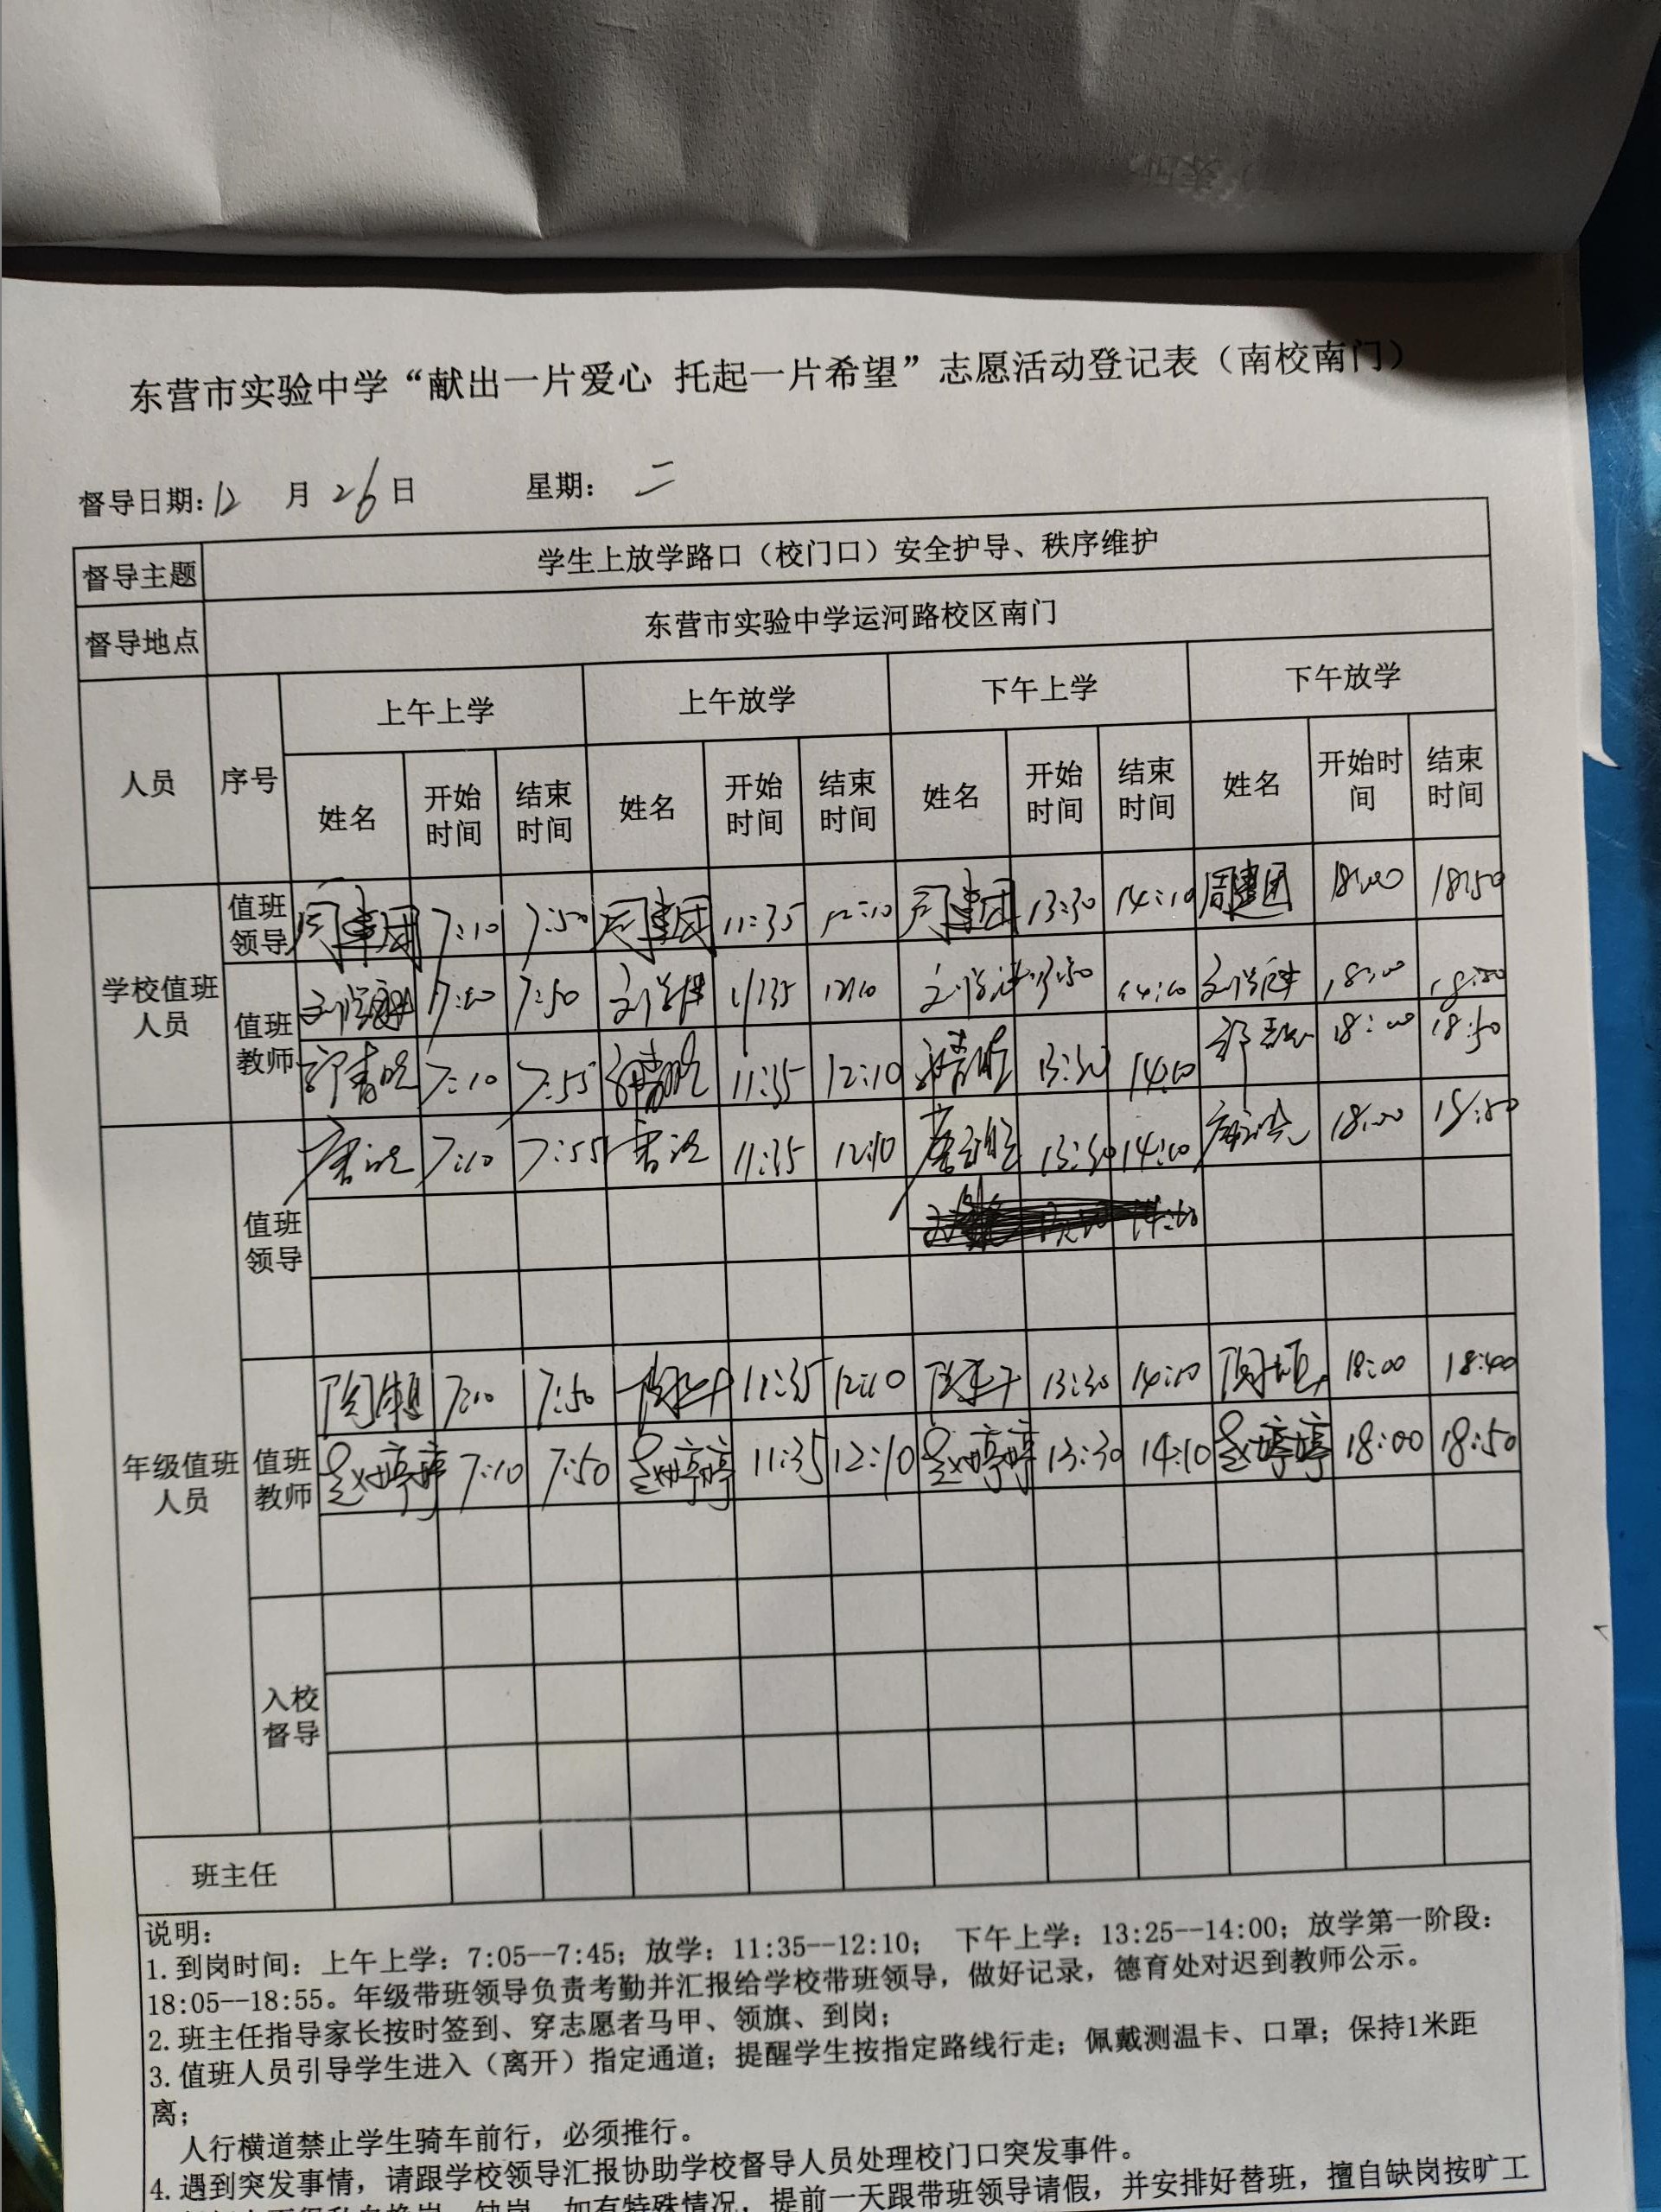 东营市实验中学“献出一片爱心 托起一片希望”志愿活动登记表（南校南门）
督导日期：12 月 26 日 星期： 二
督导主题 学生上放学路口（校门口）安全护导、秩序维护
督导地点 东营市实验中学运河路校区南门
人员 序号 上午上学 上午放学 下午上学 下午放学
姓名 开始时间 结束时间 姓名 开始时间 结束时间 姓名 开始时间 结束时间 姓名 开始时间 结束时间
学校值班人员
值班领导 周建团 7:10 7:50 周建团 11:35 12:10 周建团 13:30 14:10 周建团 18:00 18:50
值班教师 7:50 11:35 12:10 14:10 18:00 18:50
7:10 7:55 11:35 12:10 13:30 14:10 18:00 18:50
年级值班人员
值班领导 7:10 7:55 11:35 12:10 13:30 14:10 18:00 18:50
14:10
值班教师 7:10 7:50 11:35 12:10 13:30 14:10 18:00 18:40
赵婷婷 7:10 7:50 赵婷婷 11:35 12:10 赵婷婷 13:30 14:10 赵婷婷 18:00 18:50
入校督导
班主任
说明：
1.到岗时间：上午上学：7:05--7:45；放学：11:35--12:10； 下午上学：13:25--14:00；放学第一阶段：
18:05--18:55。年级带班领导负责考勤并汇报给学校带班领导，做好记录，德育处对迟到教师公示。
2.班主任指导家长按时签到、穿志愿者马甲、领旗、到岗；
3.值班人员引导学生进入（离开）指定通道；提醒学生按指定路线行走；佩戴测温卡、口罩；保持1米距
离；
人行横道禁止学生骑车前行，必须推行。
4.遇到突发事情，请跟学校领导汇报协助学校督导人员处理校门口突发事件。
缺岗，如有特殊情况，提前一天跟带班领导请假，并安排好替班，擅自缺岗按旷工